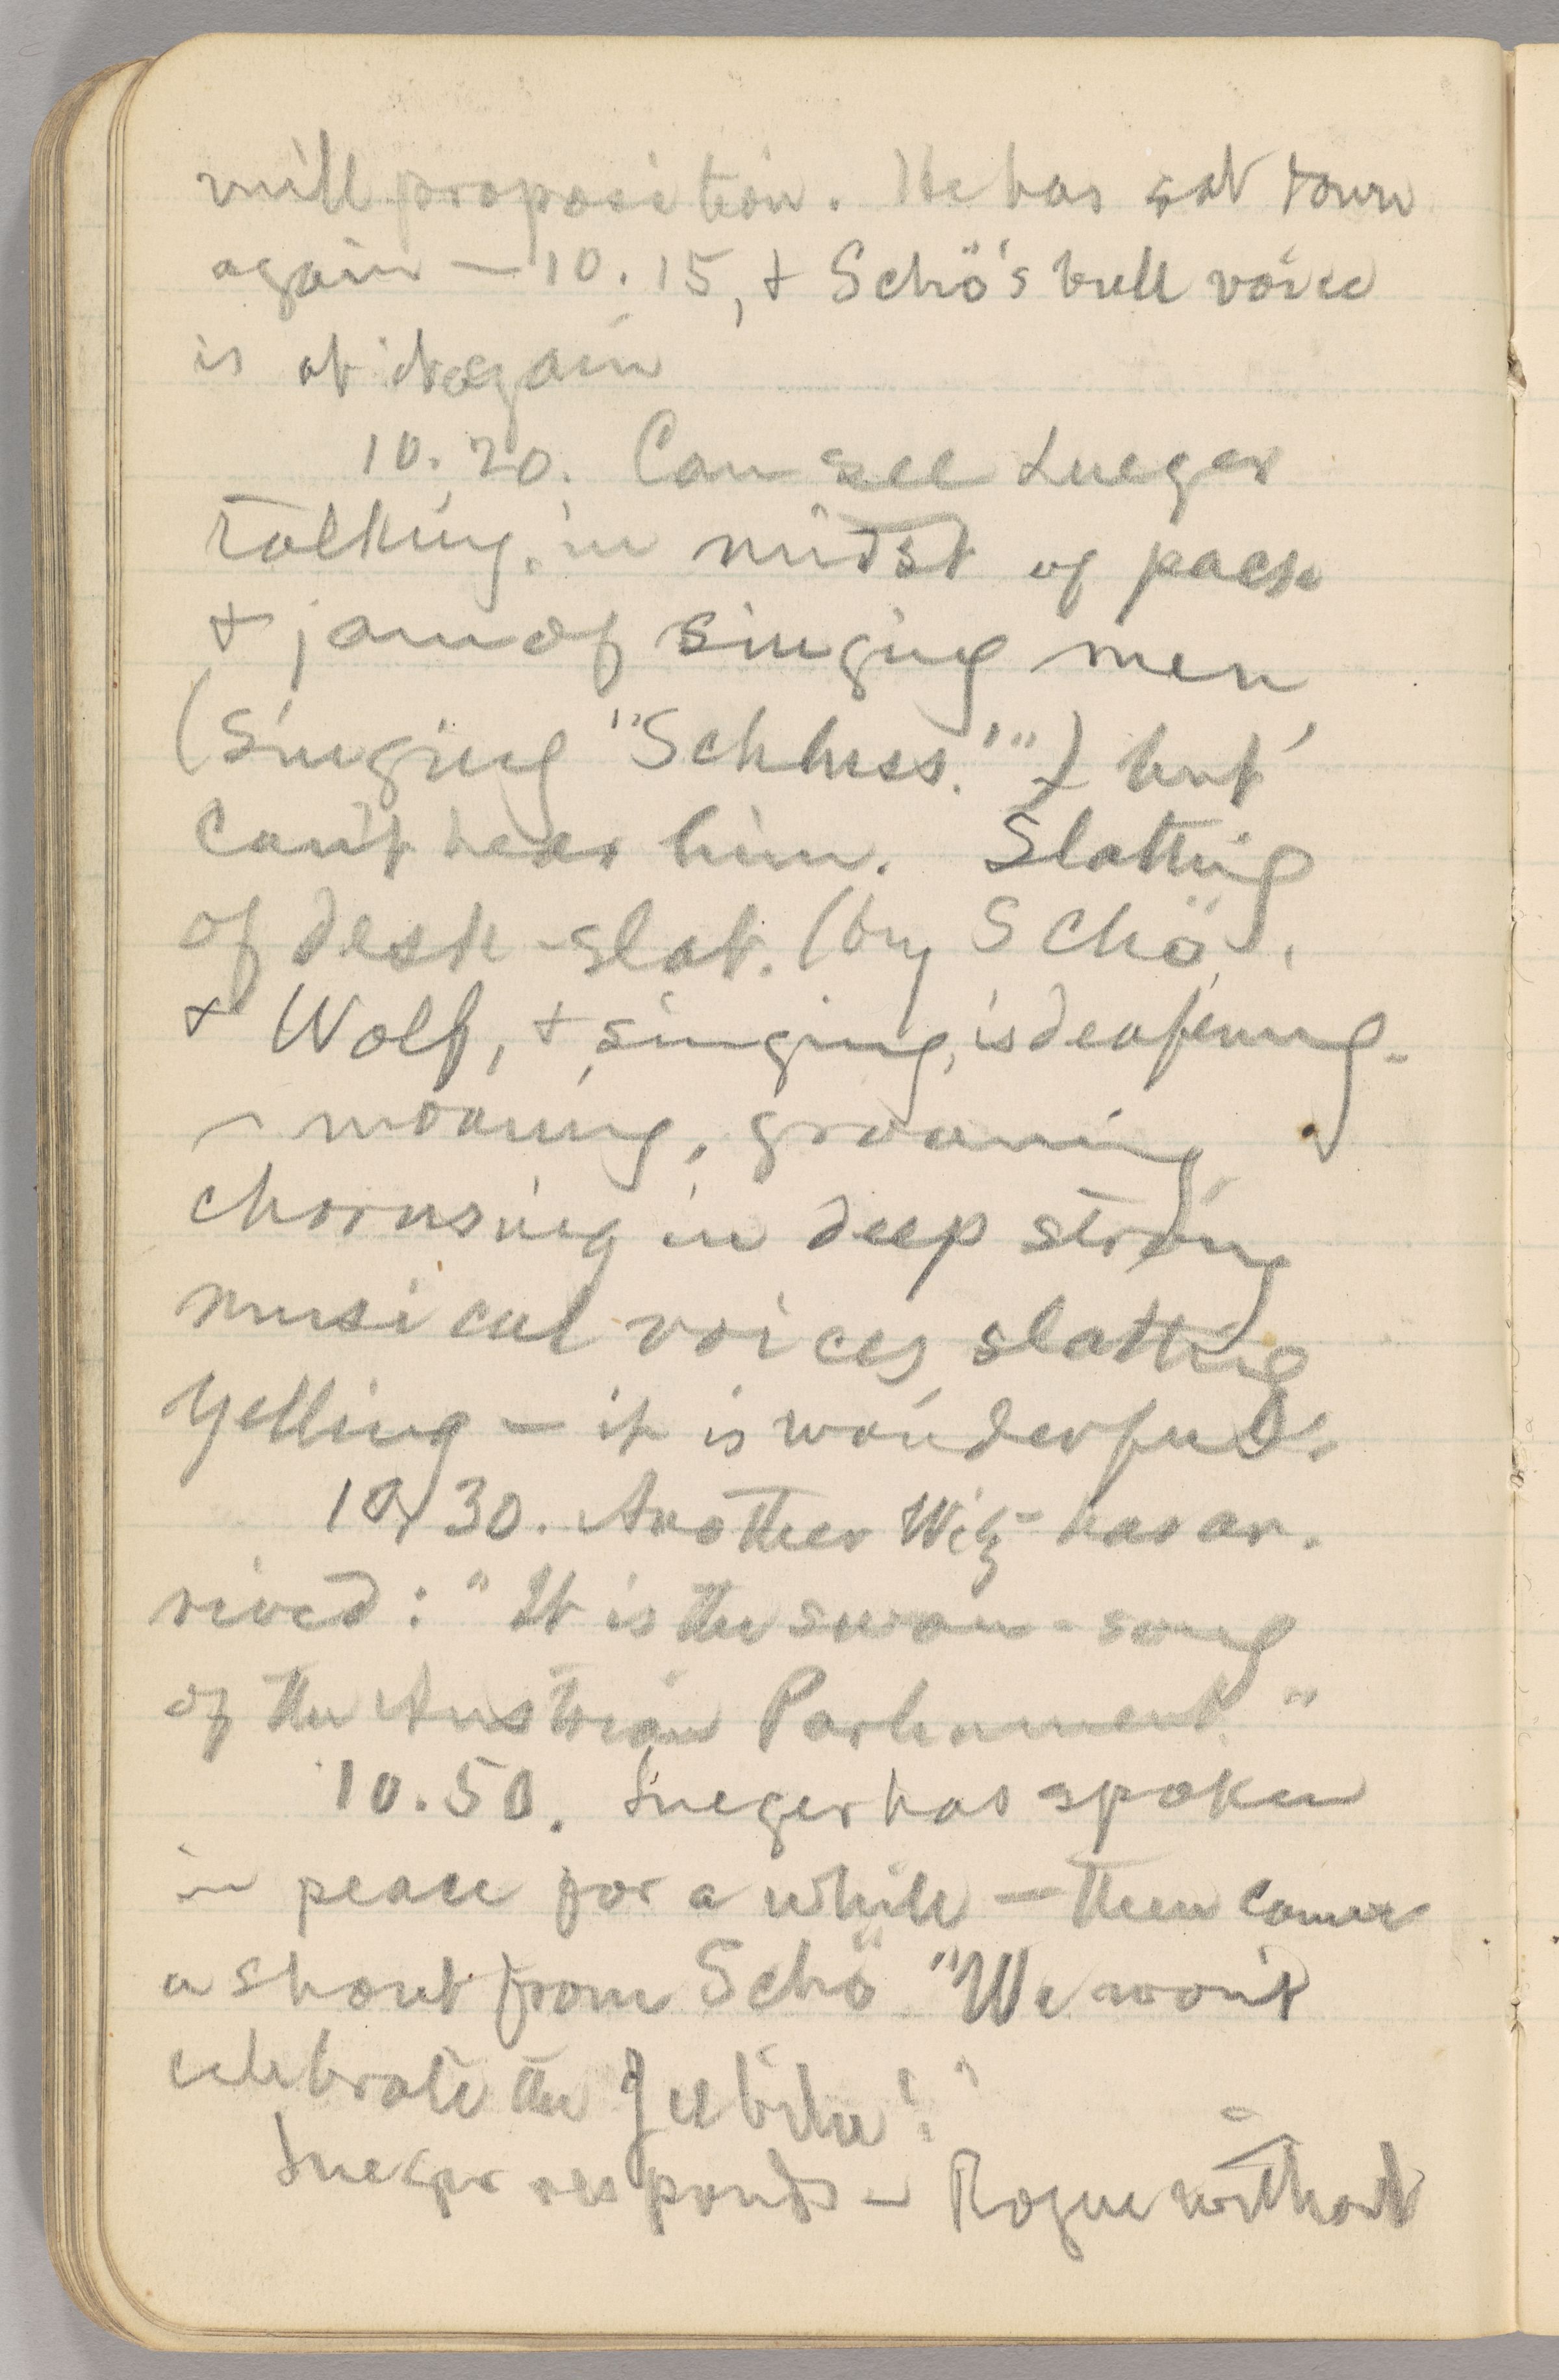 mill proposition. He has sat down
again — 10.15, & Schö's bull voice
is at it again
10.20. Can see Lueger
talking, in midst of pack
& jam of singing men
(singing "Schluss!") but
can't hear him. Slatting
of desk-slat. (by Schö.
& Wolf, & singing, is deafening.
— moaning, groaning,
chorusing in deep strong
musical voices, slatting
yelling — it is wonderful.
10.30. Another Witz has ar-
rived: "It is the swan-song
of the Austrian Parliament."
10.50. Lueger has spoken
in peace for a while — then comes
a shout from Schö "We won't
celebrate the Jubilee!"
Lueger responds — Rogue without